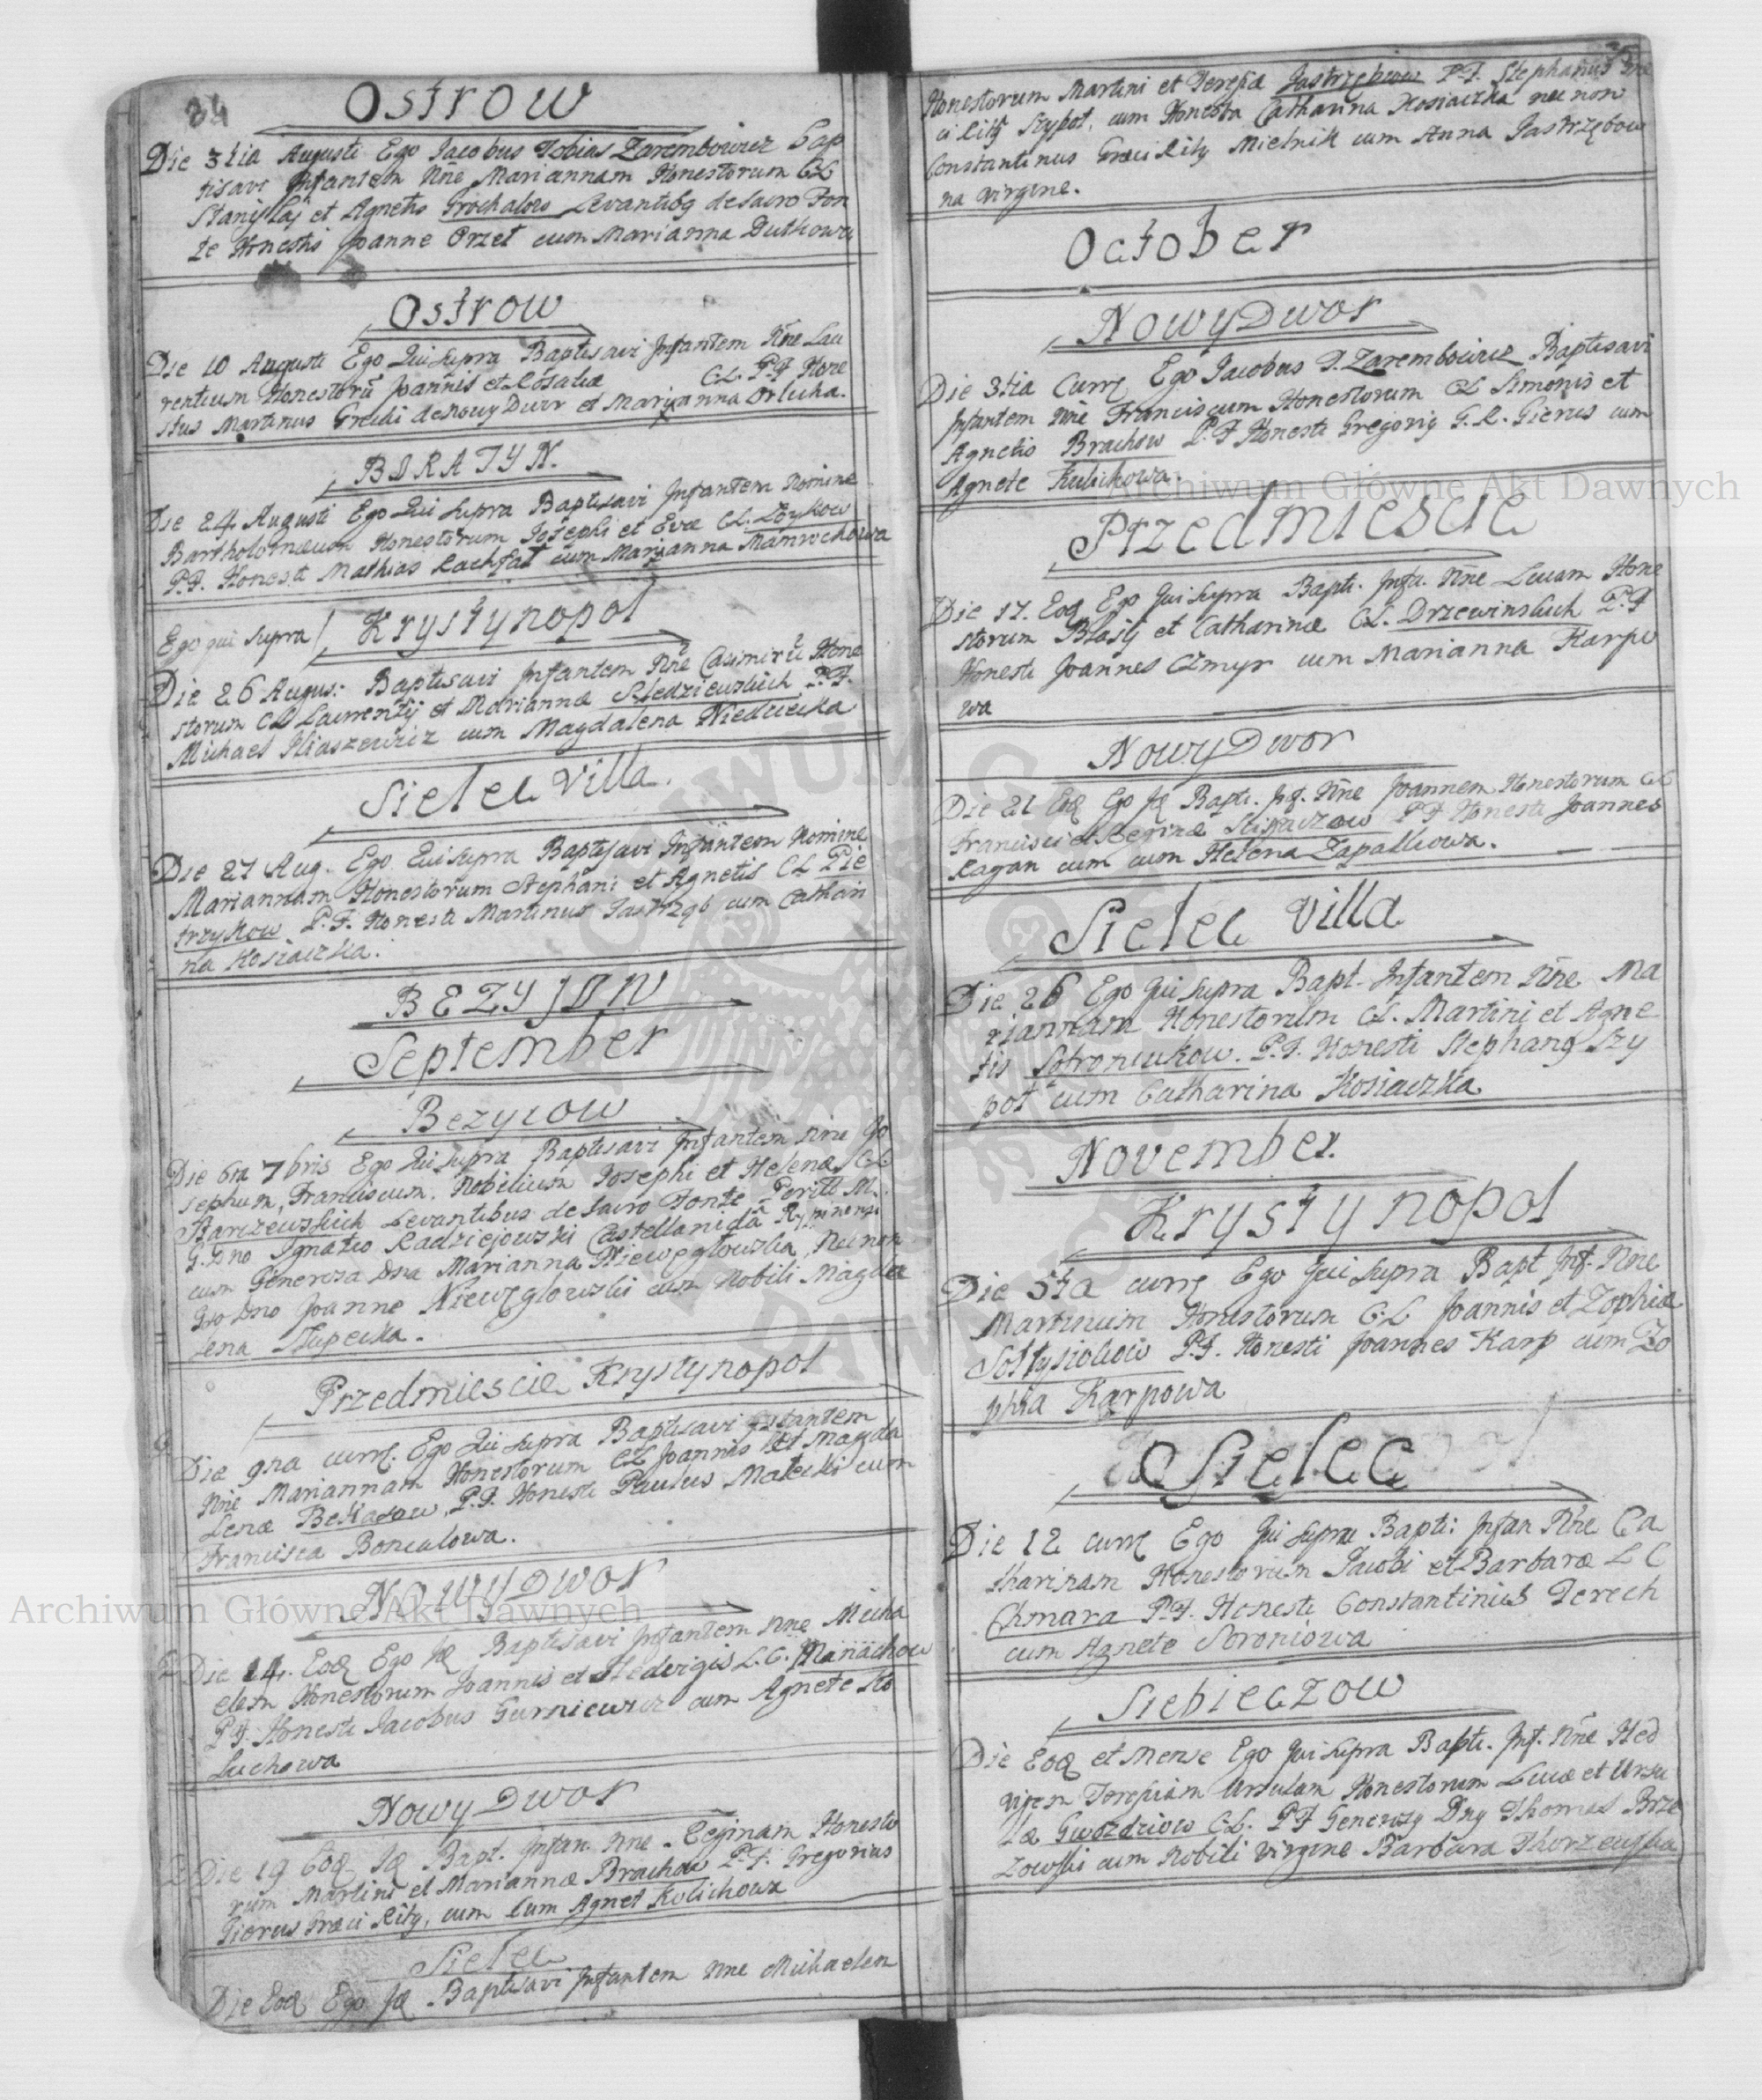 34
Ostrow
Die 3tia Augusti Ego Jacobus Tobias Zarembowicz Bap
tisavi Infantem Nne Mariannam Honestorum CL
Stanislaj et Agnetis Grochalow Levantibg de Sacro Fon
te Honestis Joanne Orzet cum Marianna Dutkowa
Ostrow
Die 10 Augusti Ego Qui Supra Baptisavi Infantem Nne Lau
rentium Honestorū Joannis et Rosaliæ CL. P.F Hone
stus Martinus Grecki de Nowy Dwr et Marjanna Orlicha.
BORATYN.
Die 24 Augusti Ego Qui Supra Baptisavi Infantem Nomine
Bartholomæum Honestorum Josephi et Evæ CL. Łoykow
P.F. Honesti Mathias Rachfał cum Marjanna Mamrochowa
Ego qui supra Krystynopol
Die 26 Augus: Baptisavi Infantem Nne Casimirū Hone
storum CL Laurentij et Mariannæ Sledziewskich P.F.
Michael Iliaszewicz cum Magdalena Niedzwecka
Sielec Villa.
Die 27 Aug. Ego Qui Supra Baptisavi Infantem Nomine
Mariannam Honestorum Stephani et Agnetis CL Pie
trzykow P.F. Honesti Martinus Jastrząb cum Cathari
na Kosiaczka.
BEZYJOW
September
Bezyiow
Die 6ta 7bris Ego Qui Supra Baptisavi Infantem Nne Jo
sephum, Franciscum. Nobilium Josephi et Helenæ CL
Starczewskich Levantibus de Sacro Fonte Perill M.
G. Dno Ignatio Radziejowski Castellanida Ryminensi
cum Generosa Dna Marianna Niewęgłowska, Necnon
Gso Dno Joanne Niewęglowski cum Nobili Magda
lena Słupecka.
Przedmiescie Krystynopol
Die 9na curr. Ego Qui Supra Baptisavi Infantem
Nne Mariannam Honestorum CL Joannis et Magda
lenæ Bekasow, P.F. Honesti Paulus Małecki cum
Francisca Boncalowa.
Nowy Dwor
Die 14. Eod Ego Id Baptisavi Infantem Nne Micha
elem Honestorum Joannis et Hedvigis L.C. Manachow
P.F. Honesti Jacobus Gurniewicz cum Agnete Ko
luchowa
Nowy Dwor
Die 19 Eod Id Bapt. Infan. Nne Reginam Honesto
rum Martini et Mariannæ Brachow P.F. Gregorius
Gierus Græci Ritg, cum cum Agnet Kulichowa
Sielec
Die Eod Ego Id Baptisavi Infantem Nne Michaelem
Honestorum Martini et Teresiæ Jastrzębiow P.F. Stephanus Græ
ci Ritg Szypot, cum Honesta Catharina Kosiaczka nec non
Constantinus Græci Ritg Mielnik cum Anna Jastrzębow
na virgine.
October
Nowy Dwor
Die 3tia Curr Ego Jacobus T. Zarembowicz Baptisavi
Infantem Nne Franciscum Honestorum CL Simonis et
Agnetis Brachow P.F Honesti Gregorig G.R. Gierus cum
Agnete Kulichowa.
Przedmiescie
Die 17. Eod Ego Qui Supra Bapti. Infa. Nne Lucam Hone
storum Blasij et Catharinæ CL. Drzewinskich P.F
Honesti Joannes Czmyr cum Marianna Karpo
wa
Nowy Dwor
Die 21 Eod Ego Id Bapti. Inf. Nne Joannem Honestorum CL
Francisci et Reginæ P.F Honesti Joannes
Kagan cum cum Helena Zapałkowa.
Sielec Villa
Die 26 Ego Qui Supra Bapt. Infantem Nne Ma
riannam Honestorum CL. Martini et Agne
tis Sotroniukow. P.F. Honesti Stephang Szy
pot cum Catharina Kosiaczka
November.
Krystynopol
Die 5ta curr Ego Qui Supra Bapt Inf. Nne
Martinum Honestorum CL Joannis et Zophiæ
Sołtysiokow P.F. Honesti Joannes Karp cum Zo
phia Karpowa
Sielec
Die 12 curr Ego Qui Supra Bapti: Infan Nne Ca
tharinam Honestorum Jacobi et Barbaræ L C
Chmara P.F. Honesti Constantinus Derech
cum Agnete Soroniowa
Siebieczow
Die Eod et Mense Ego Qui Supra Bapti. Inf. Nne Hed
vigem Teresiam Ursulam Honestorum Lucæ et Ursu
læ Gwozdziow CL. P.F Generosg Dng Thomas Brze
zowski cum Nobili virgine Barbara Thorzewska
Archiwum Główne Akt Dawnych
Archiwum Główne Akt Dawnych